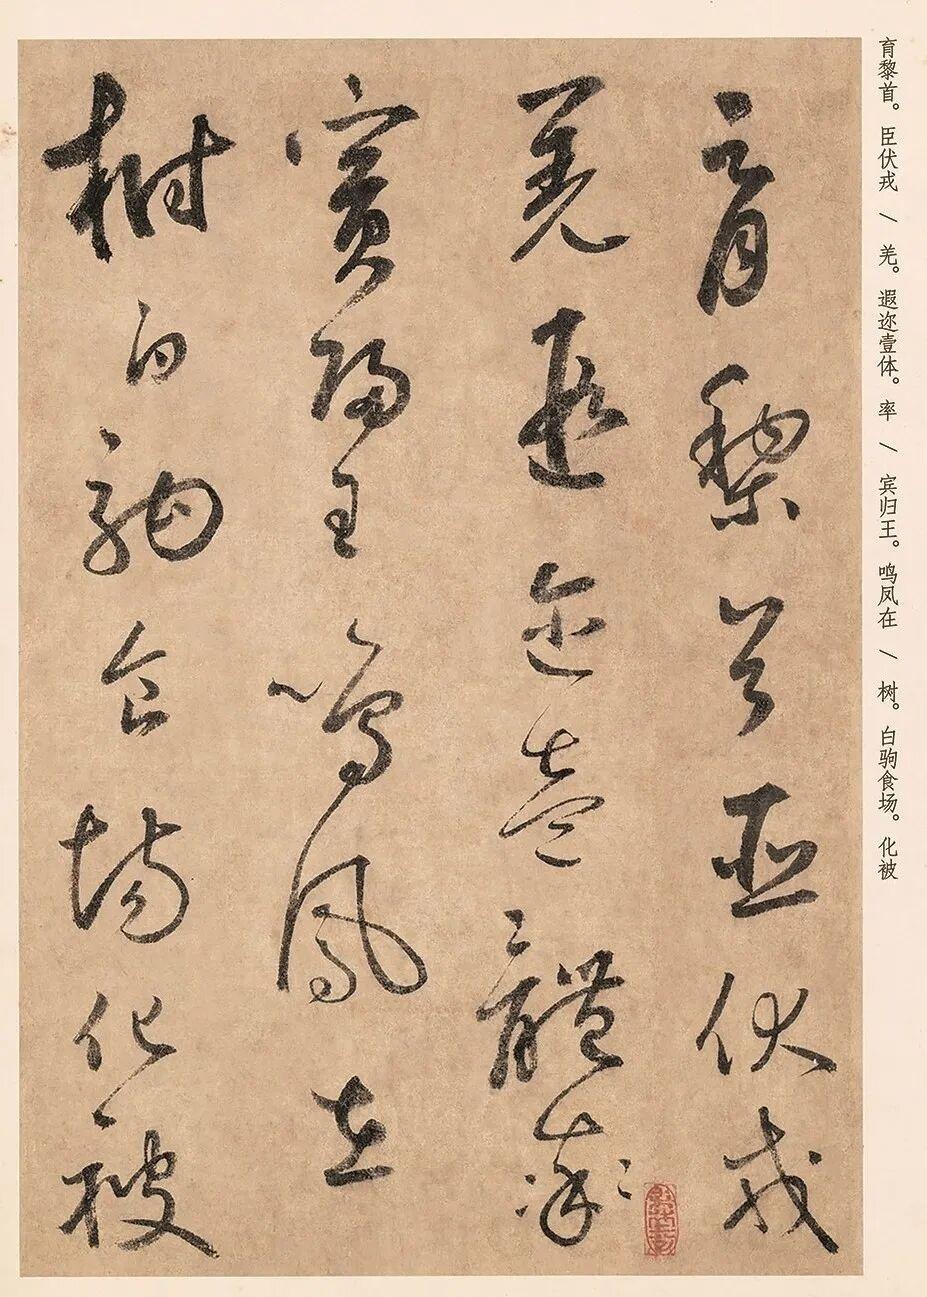 育黎首。臣伏戎 \ 羌。遐迩壹体。率 \ 宾归王。鸣凤在 \ 树。白驹食场。化被
育黎首臣伏戎
羌遐迩壹體率
賓歸王鳴鳳在
樹白駒食場化被